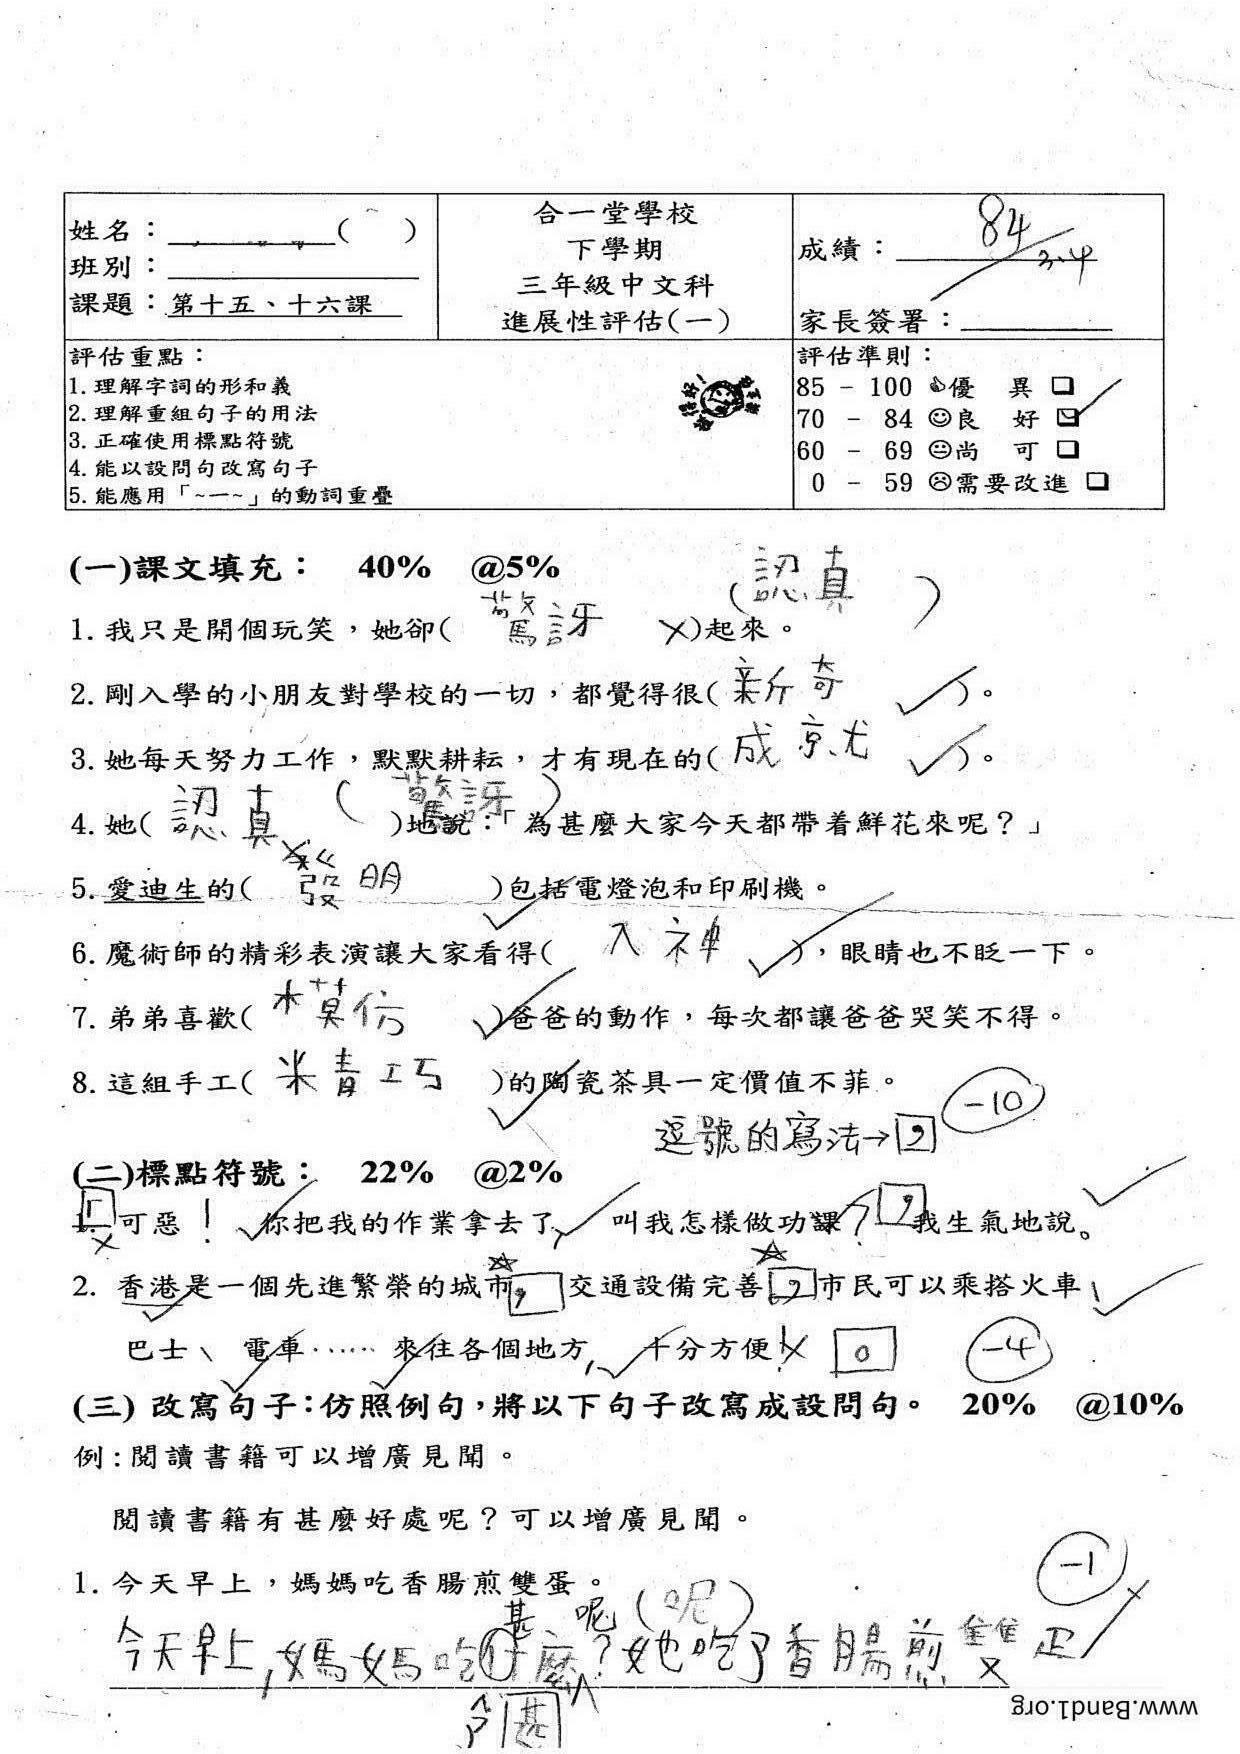 姓名：( )
班別：
課題：第十五、十六課
合一堂學校
下學期
三年級中文科
進展性評估(一)
成績：84
3.4
家長簽署：
評估重點：
1.理解字詞的形和義
2.理解重組句子的用法
3.正確使用標點符號
4.能以設問句改寫句子
5.能應用「~一~」的動詞重疊
評估準則：
85 - 100 優 異
70 - 84 良 好
60 - 69 尚 可
0 - 59 需要改進
(一)課文填充： 40% @5%
(認真)
1.我只是開個玩笑，她卻(驚訝)起來。
2.剛入學的小朋友對學校的一切，都覺得很(新奇)。
3.她每天努力工作，默默耕耘，才有現在的(成就)。
(驚訝)
4.她(認真)地說：「為甚麼大家今天都帶着鮮花來呢？」
5.愛迪生的(發明)包括電燈泡和印刷機。
6.魔術師的精彩表演讓大家看得(入神)，眼睛也不眨一下。
7.弟弟喜歡(模仿)爸爸的動作，每次都讓爸爸哭笑不得。
8.這組手工(精巧)的陶瓷茶具一定價值不菲。
-10
逗號的寫法→，
(二)標點符號： 22% @2%
1.「可惡！你把我的作業拿去了，叫我怎樣做功課？」我生氣地說。
2. 香港是一個先進繁榮的城市，交通設備完善，市民可以乘搭火車、
巴士、電車……來往各個地方，十分方便！。
-4
(三) 改寫句子：仿照例句，將以下句子改寫成設問句。 20% @10%
例：閱讀書籍可以增廣見聞。
閱讀書籍有甚麼好處呢？可以增廣見聞。
1.今天早上，媽媽吃香腸煎雙蛋。
-1
甚 呢(呢)
今天早上，媽媽吃什麼？她吃了香腸煎雙蛋
甚
www.Band1.org